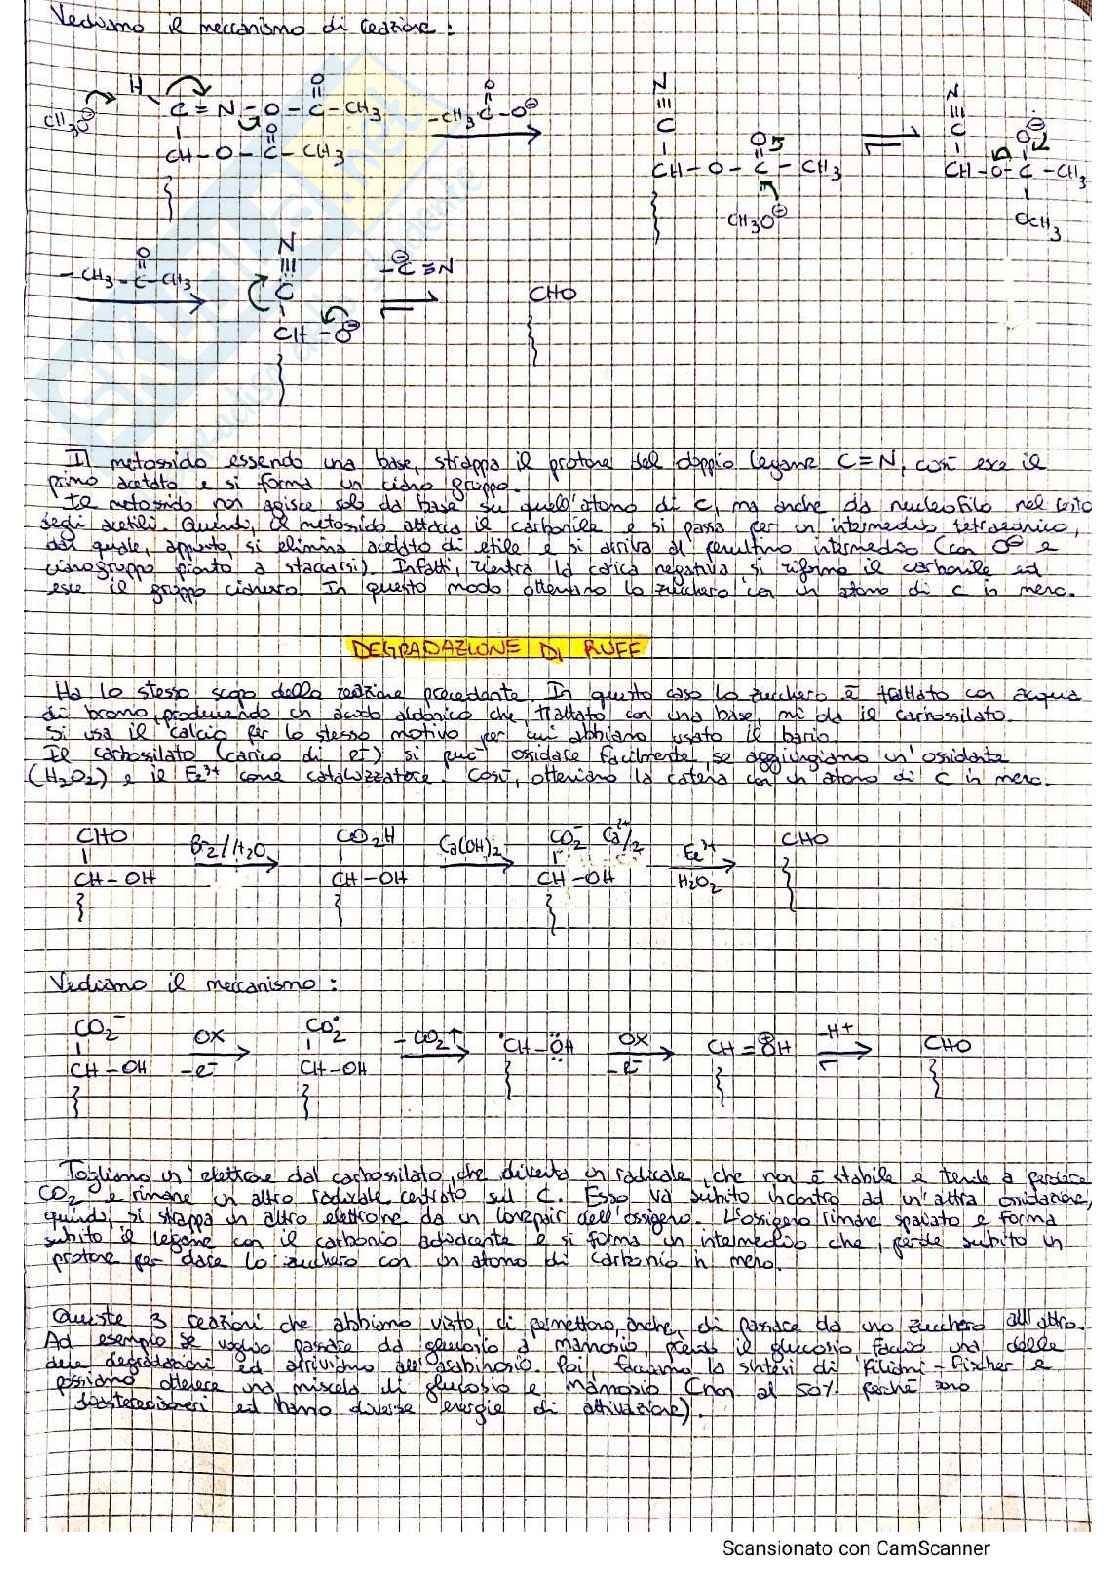 Vediamo il meccanismo di reazione :
H O
CH3O⊖ C = N - O - C - CH3
O
CH - O - C - CH3
O
- CH3 - C - O⊖
N
C
O
CH - O - C - CH3
CH3O⊖
N
C
O⊖
CH - O - C - CH3
OCH3
O
- CH3 - C - CH3
N
C
CH - O⊖
- ⊖C≡N
CHO
Il metossido essendo una base, strappa il protone del doppio legame C=N, così esce il
primo acetato e si forma un ciano gruppo.
Il metossido non agisce solo da base su quell'atomo di C, ma anche da nucleofilo nel resto
degli acetili. Quindi, il metossido attacca il carbonile e si passa per un intermedio tetraedrico,
dal quale, appunto, si elimina acetato di etile e si arriva al penultimo intermedio (con O⊖ e
cianogruppo pronto a staccarsi). Infatti, rientra la carica negativa, si riforma il carbonile ed
esce il gruppo cianuro. In questo modo otteniamo lo zucchero con un atomo di C in meno.
DEGRADAZIONE DI RUFF
Ha lo stesso scopo della reazione precedente. In questo caso lo zucchero è trattato con acqua
di bromo, producendo un acido aldonico che, trattato con una base, mi da il carbossilato.
Si usa il calcio per lo stesso motivo per cui abbiamo usato il bario.
Il carbossilato (carico di e-) si può ossidare facilmente, se aggiungiamo un'ossidante
(H2O2) e il Fe3+ come catalizzatore. Così, otteniamo la catena con un atomo di C in meno.
CHO Br2/H2O CO2H Ca(OH)2 CO2- Ca2+/2 Fe3+ CHO
CH - OH CH - OH CH - OH H2O2
Vediamo il meccanismo :
CO2- OX CO2• - CO2↑ •CH - ÖH OX CH = ⊕OH -H+ CHO
CH - OH -e- CH - OH -e-
Togliamo un'elettrone dal carbossilato, che diventa un radicale, che non è stabile e tende a perdere
CO2 e rimane un altro radicale centrato sul C. Esso va subito incontro ad un'altra ossidazione,
quindi, si strappa un altro elettrone da un lonepair dell'ossigeno. L'ossigeno rimane spaiato e forma
subito il legame con il carbonio adiacente e si forma un intermedio che, perde subito un
protone per dare lo zucchero con un atomo di carbonio in meno.
Queste 3 reazioni che abbiamo visto, ci permettono, anche, di passare da uno zucchero all'altro.
Ad esempio se voglio passare da glucosio a mannosio, prendo il glucosio faccio una delle
due degradazioni ed arriviamo all'arabinosio. Poi facciamo la sintesi di Kiliani-Fischer e
possiamo ottenere una miscela di glucosio e mannosio (non al 50% perché sono
diastereoisomeri ed hanno diverse energie di attivazione).
Scansionato con CamScanner